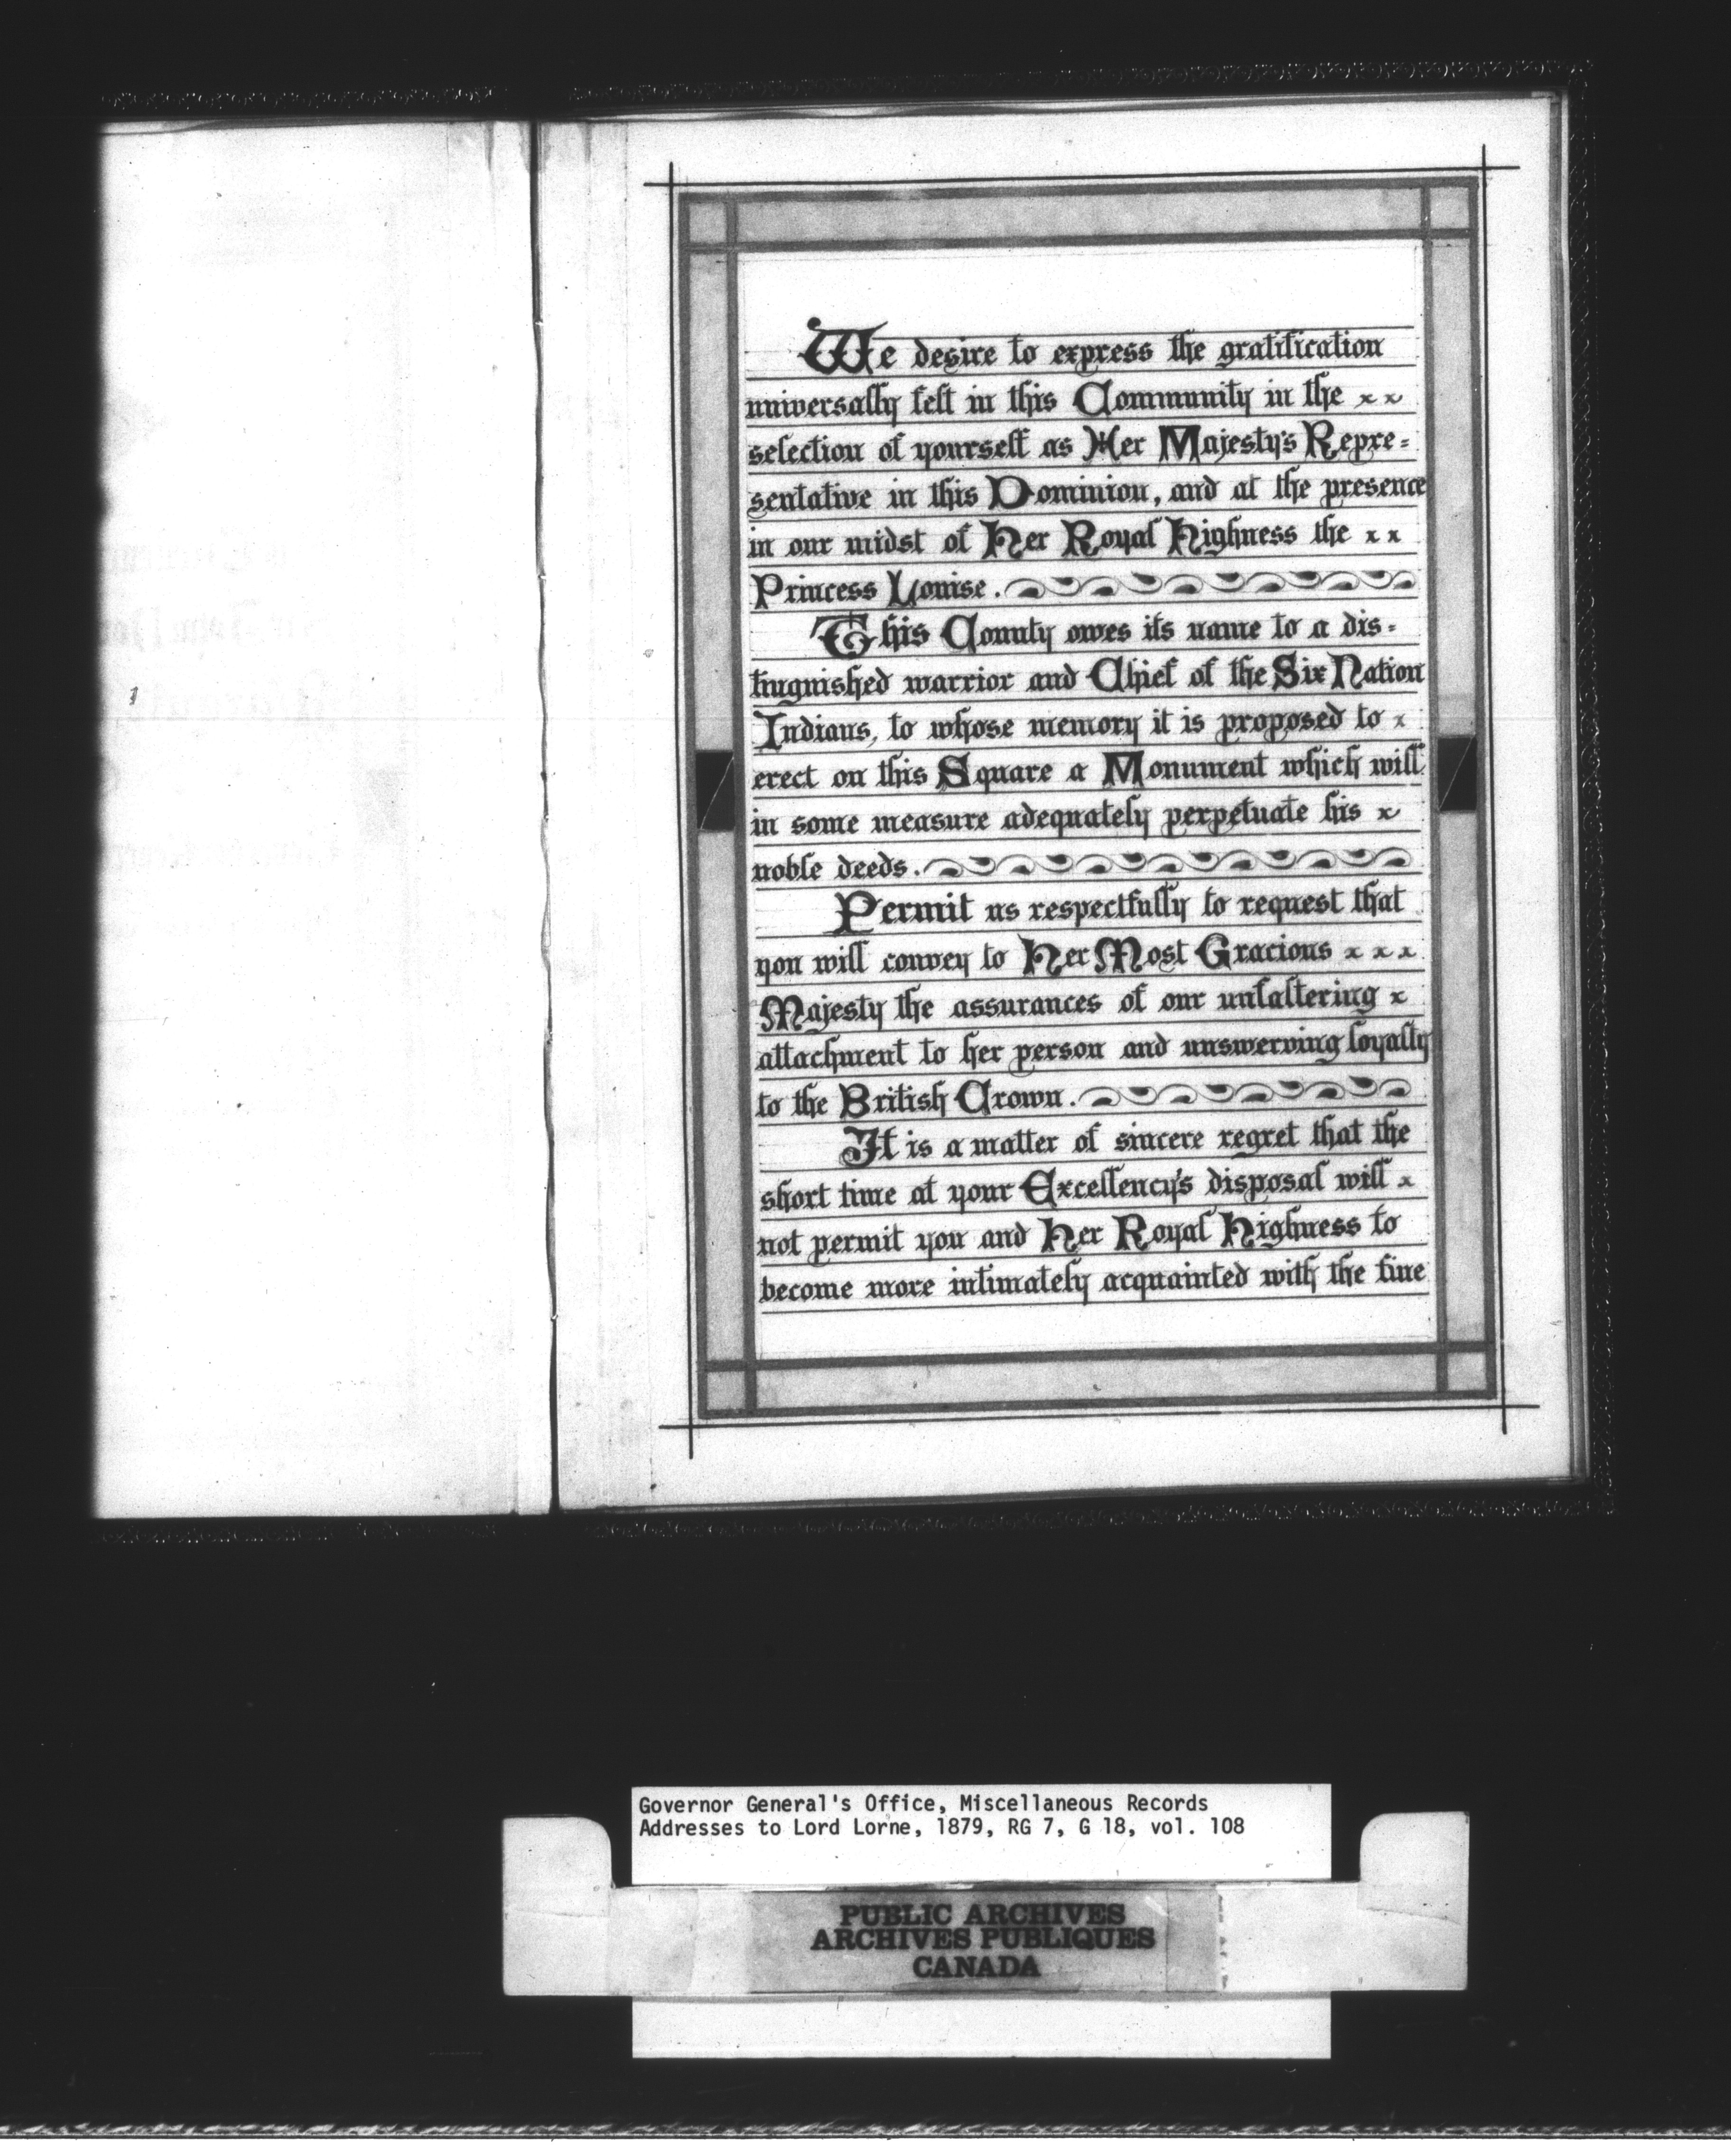 We desire to express the gratification
universally felt in this Community in the x x
selection of yourself as Her Majesty's Repre=
sentative in this Dominion, and at the presence
in our midst of Her Royal Highness the x x
Princess Louise.
This County owes its name to a dis=
tinguished warrior and Chief of the Six Nation
Indians, to whose memory it is proposed to x
erect on this Square a Monument which will
in some measure adequately perpetuate his x
noble deeds.
Permit us respectfully to request that
you will convey to Her Most Gracious x x x
Majesty the assurances of our unfaltering x
attachment to her person and unswerving loyalty
to the British Crown.
It is a matter of sincere regret that the
short time at your Excellency's disposal will x
not permit you and Her Royal Highness to
become more intimately acquainted with the fine
Governor General's Office, Miscellaneous Records
Addresses to Lord Lorne, 1879, RG 7, G 18, vol. 108
PUBLIC ARCHIVES
ARCHIVES PUBLIQUES
CANADA